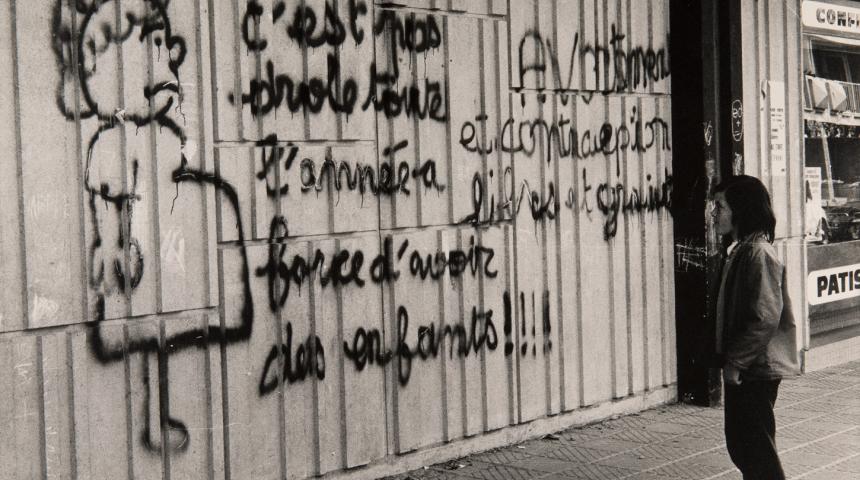 c'est pas
drole toute
l'année a
force d'avoir
des enfants!!!!
Avortement
et contraception
libres et gratuits
CONFI
PATIS